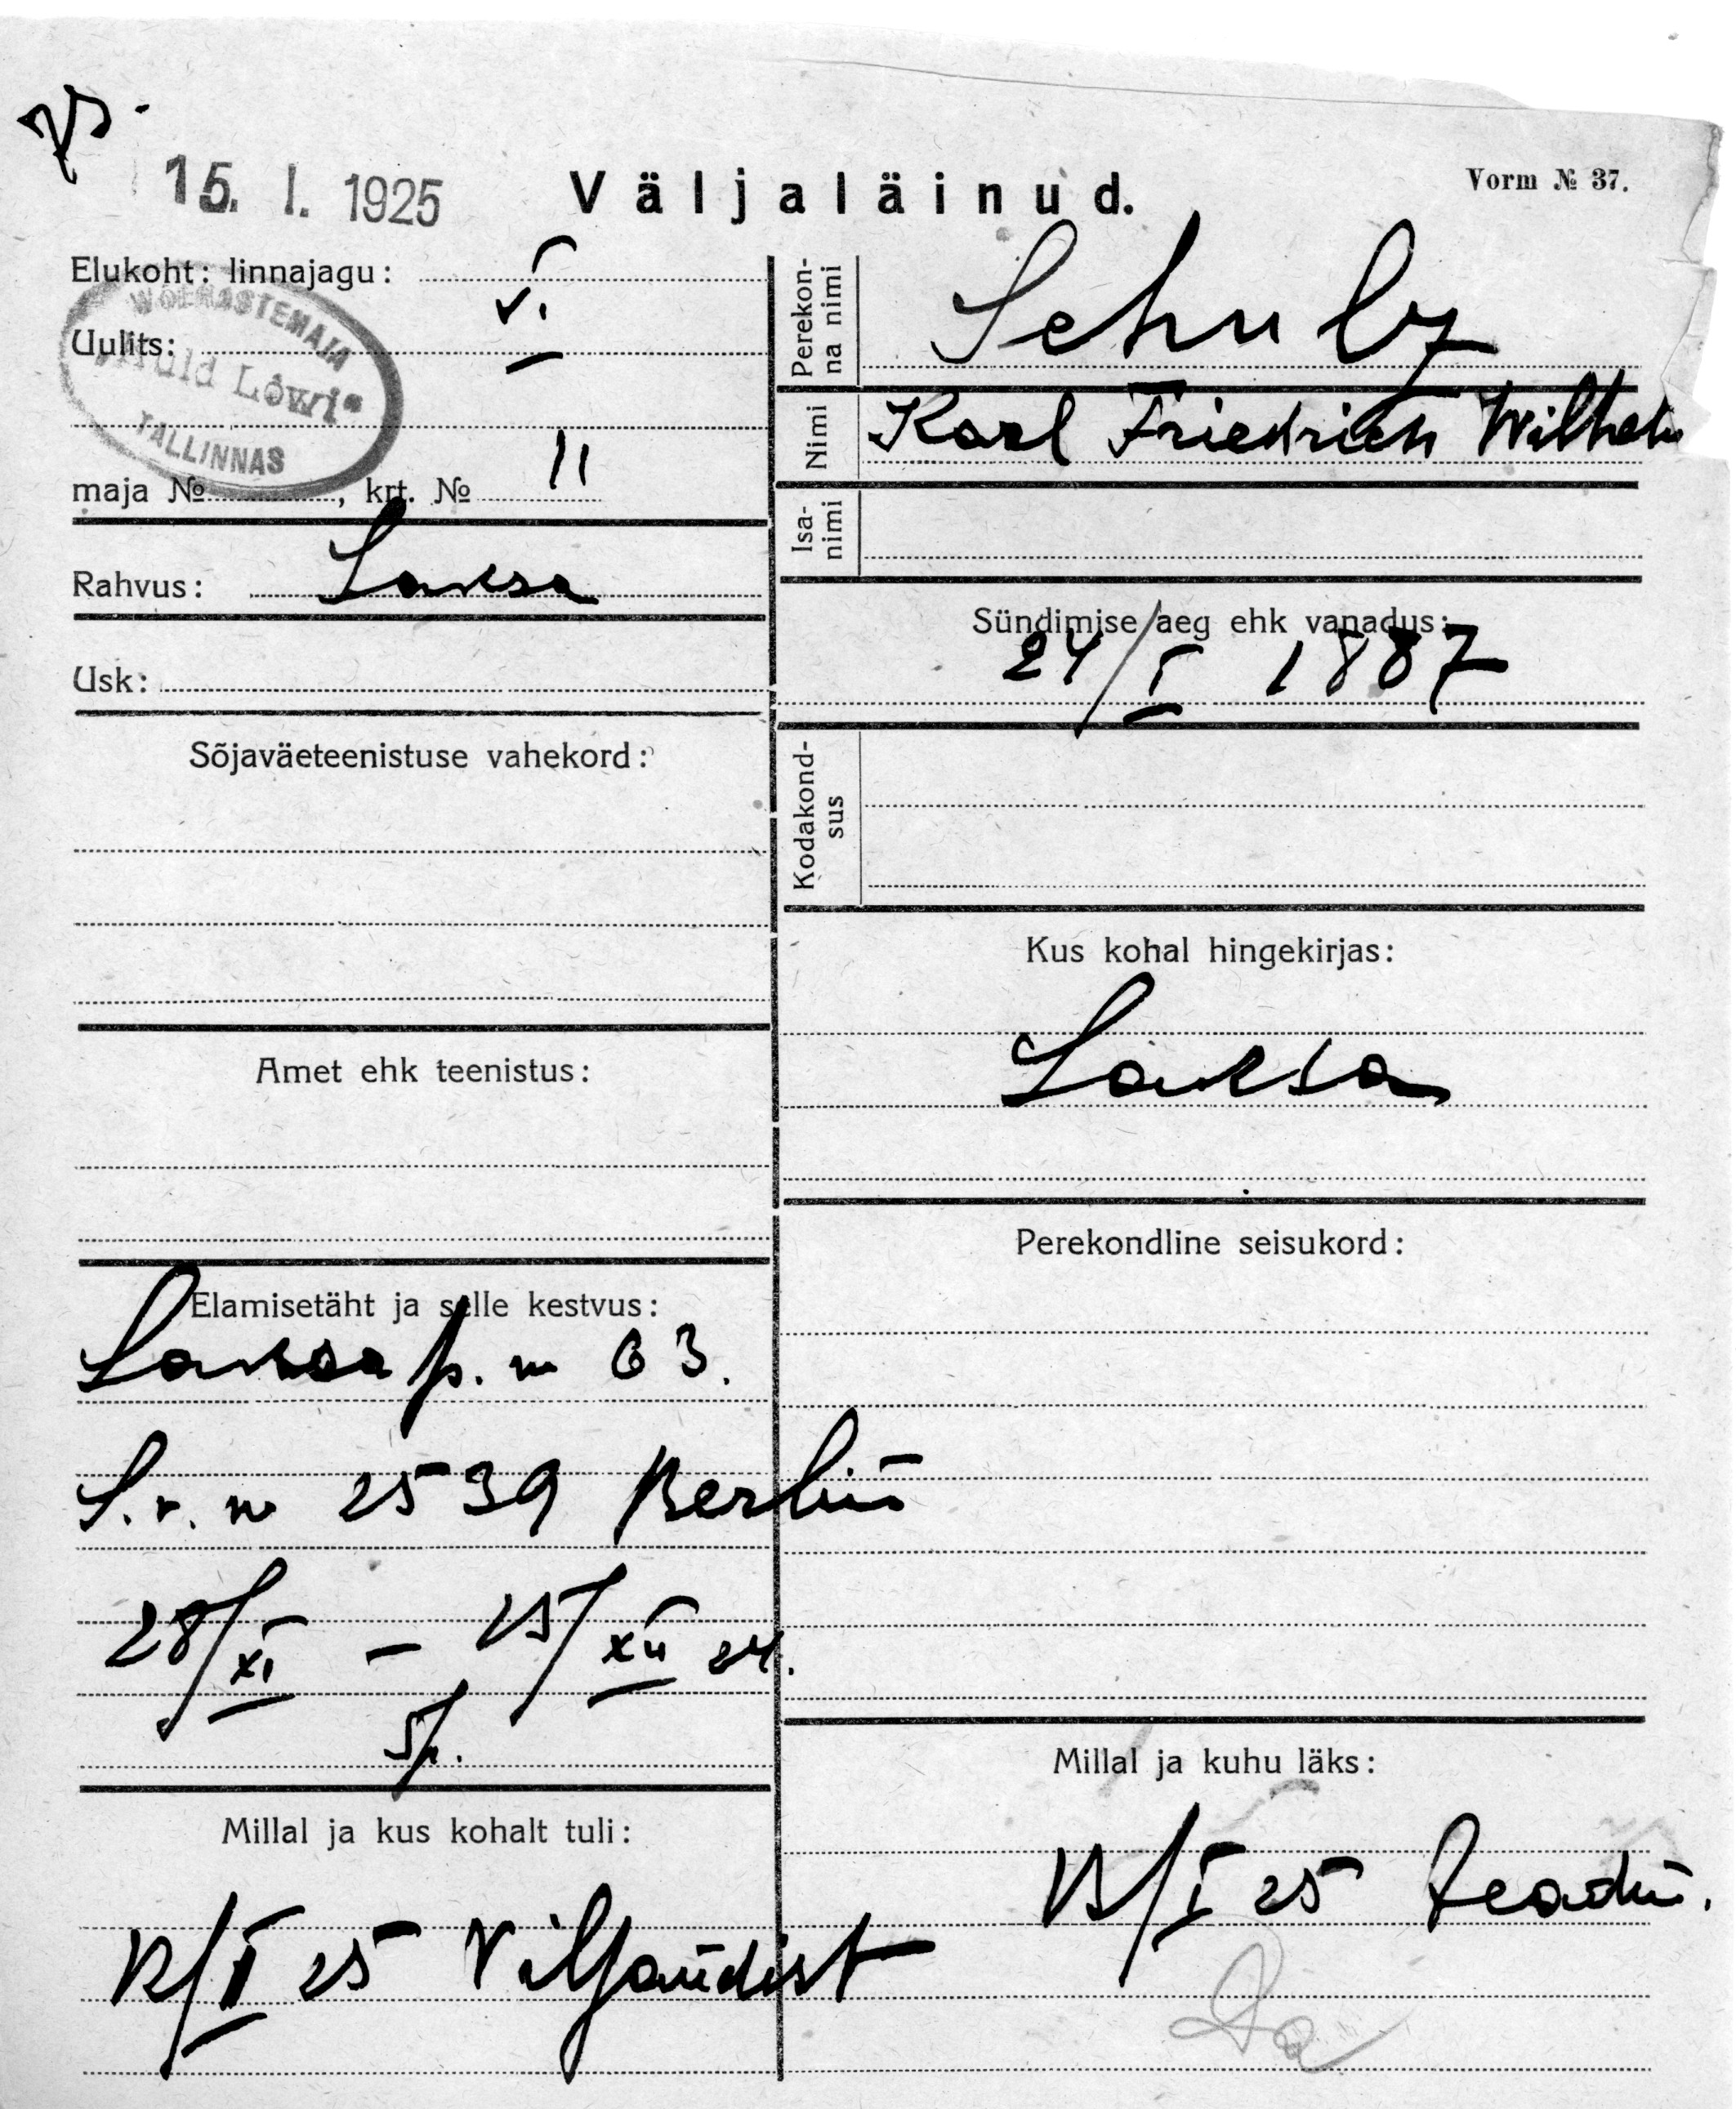 15. I. 1925
Väljaläinud.
Vorm № 37.
Elukoht: linnajagu: VI
Uulits:
WÕERASTEMAJA
"Kuld Lõwi"
TALLINNAS
maja №, krt. № 11
Rahvus: Saksa
Usk:
Sõjaväeteenistuse vahekord:
Amet ehk teenistus:
Elamisetäht ja selle kestvus:
Saksa p. № 63.
S. v. № 2539 Berliin
28/XI – 15/XII 24.
Millal ja kus kohalt tuli:
12/I 25 Viljandist
Perekon-
na nimi
Schulz
Nimi
Karl Friedrich Wilhelm
Isa-
nimi
Sündimise aeg ehk vanadus:
24/I 1887
Kodakond-
sus
Kus kohal hingekirjas:
Saksa
Perekondline seisukord:
Millal ja kuhu läks:
15/I 25 teadm.